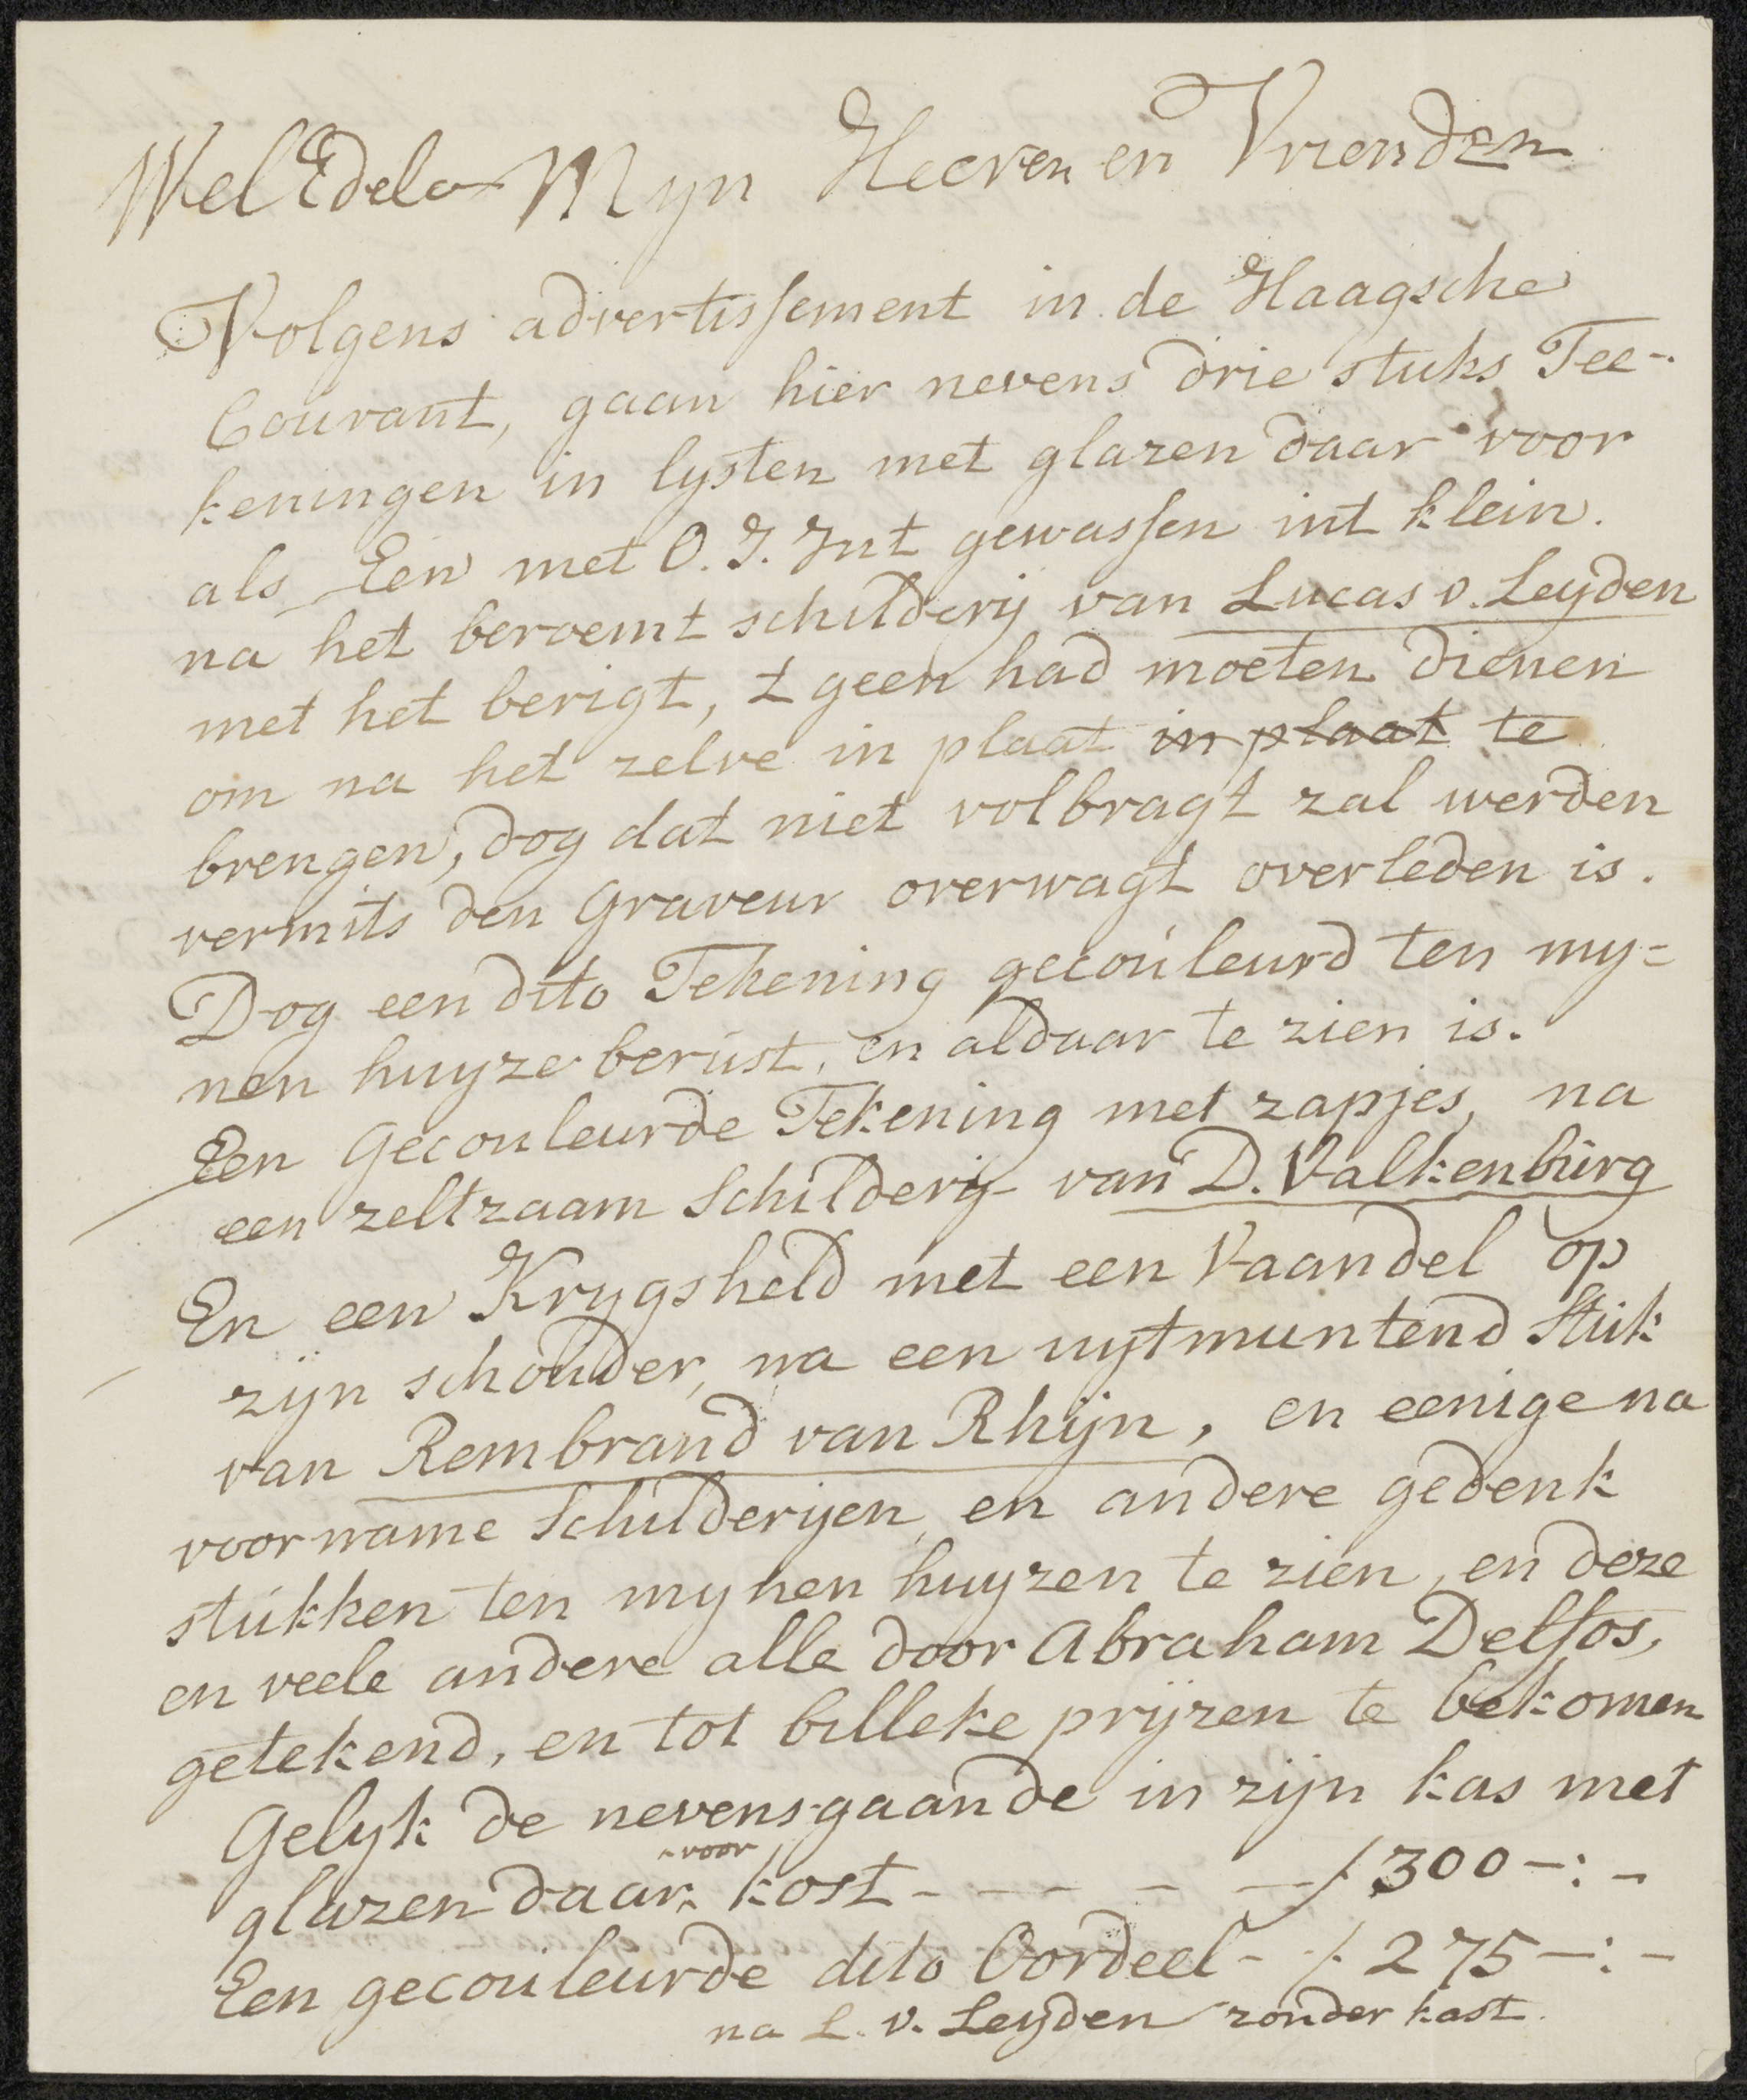 WelEdele Myn Heeren en Vrienden
Volgens advertissement in de Haagsche
Courant, gaan hier nevens drie stuks Tee-
keningen in lysten met glazen daar voor
als Een met O. I. Int gewassen int klein.
na het beroemt schilderij van Lucas v. Leyden
met het berigt, t geen had moeten dienen
om na het zelve in plaat in plaat te
brengen, dog dat niet volbragt zal werden
vermits den Graveur overwagt overleden is.
Dog een dito Tekening gecouleurd ten my=
nen huyze berust, en aldaar te zien is.
Een Gecouleurde Tekening met zapjes, na
een zeltzaam Schilderij van D. Valkenburg
En een Krygsheld met een Vaandel op
zijn schouder, na een uytmuntend Stuk
van Rembrand van Rhijn, en eenige na
voorname Schilderyen, en andere gedenk
stukken ten mynen huyzen te zien, en deze
en veele andere alle door Abraham Delfos,
getekend, en tot billeke prijzen te bekomen
Gelyk de nevensgaande in zijn kas met
glazen daar voor kost - - - - - ƒ 300 -:-
Een gecouleurde dito Oordeel - ƒ 275 -:-
na L. v. Leyden zonder kast.